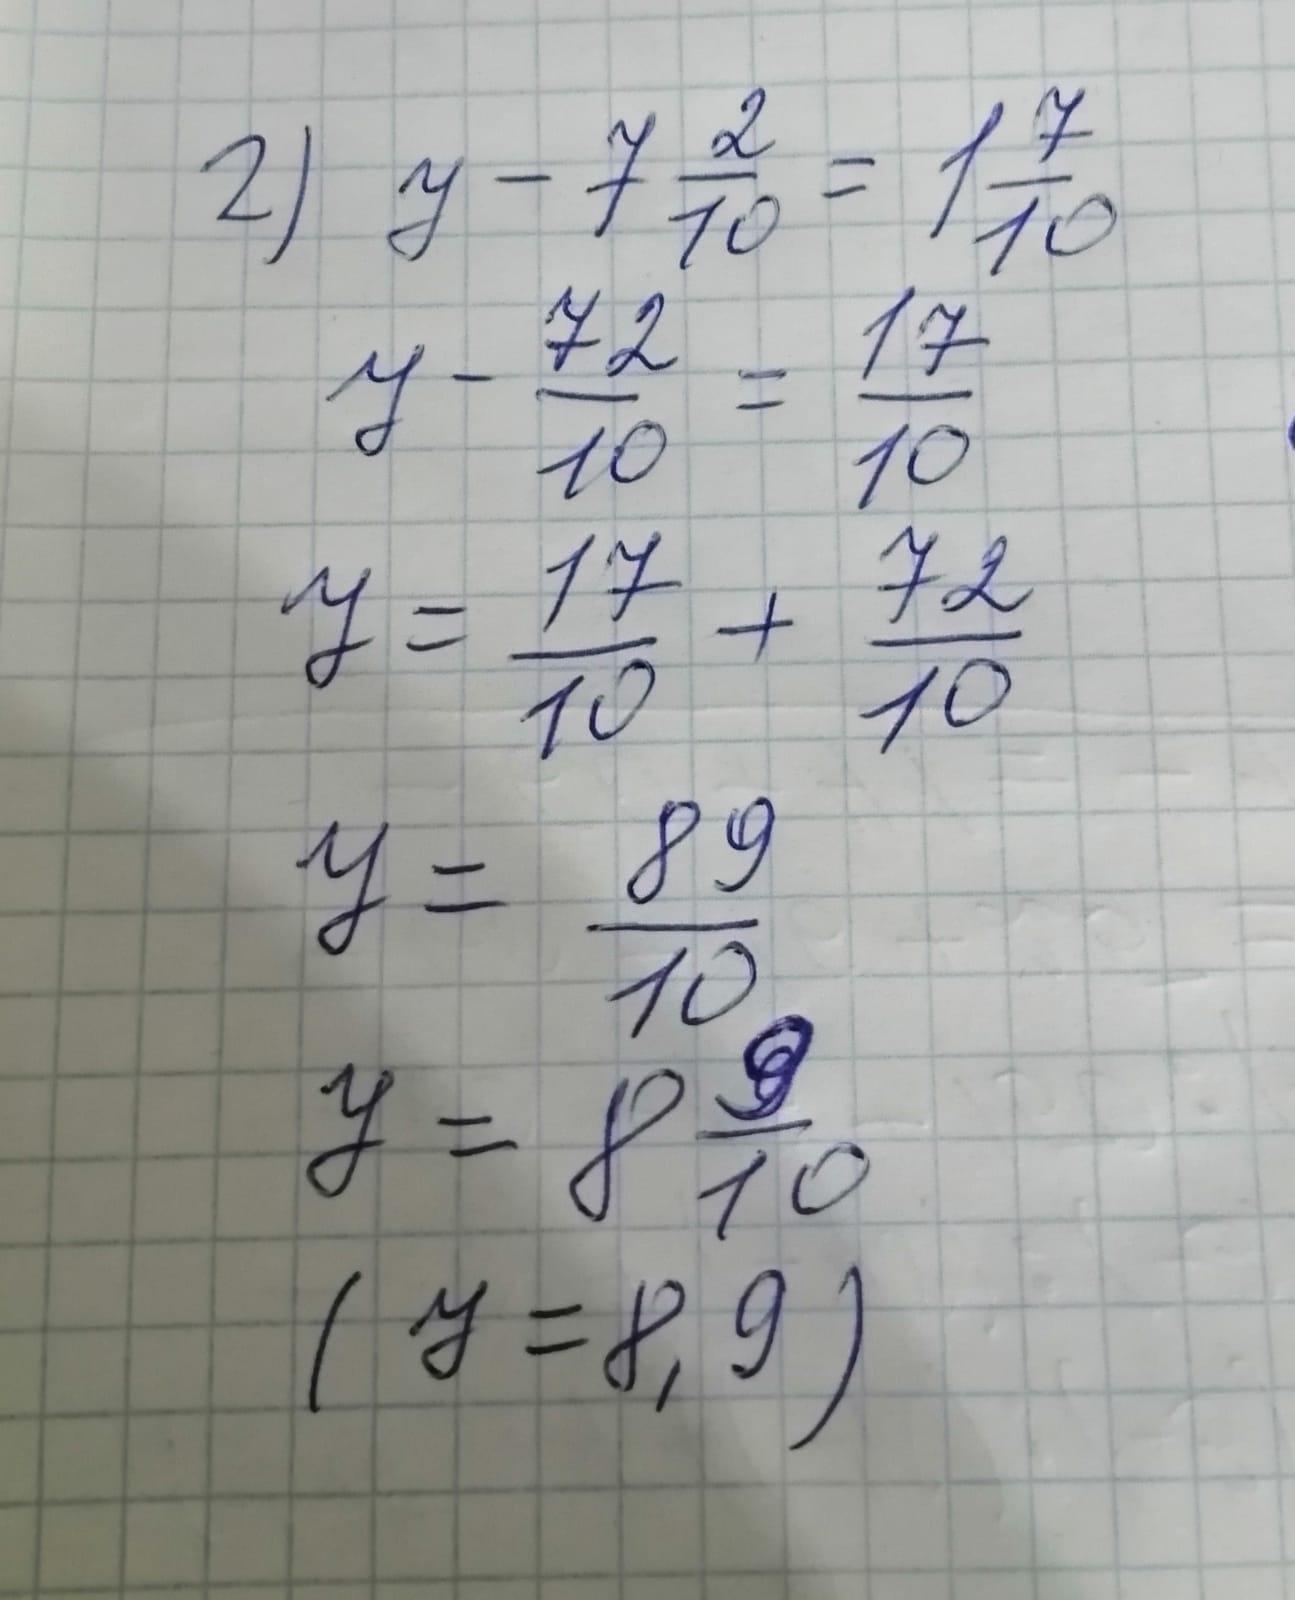 2) y - 7 2/10 = 1 7/10
y - 72/10 = 17/10
y = 17/10 + 72/10
y = 89/10
y = 8 9/10
( y = 8,9 )